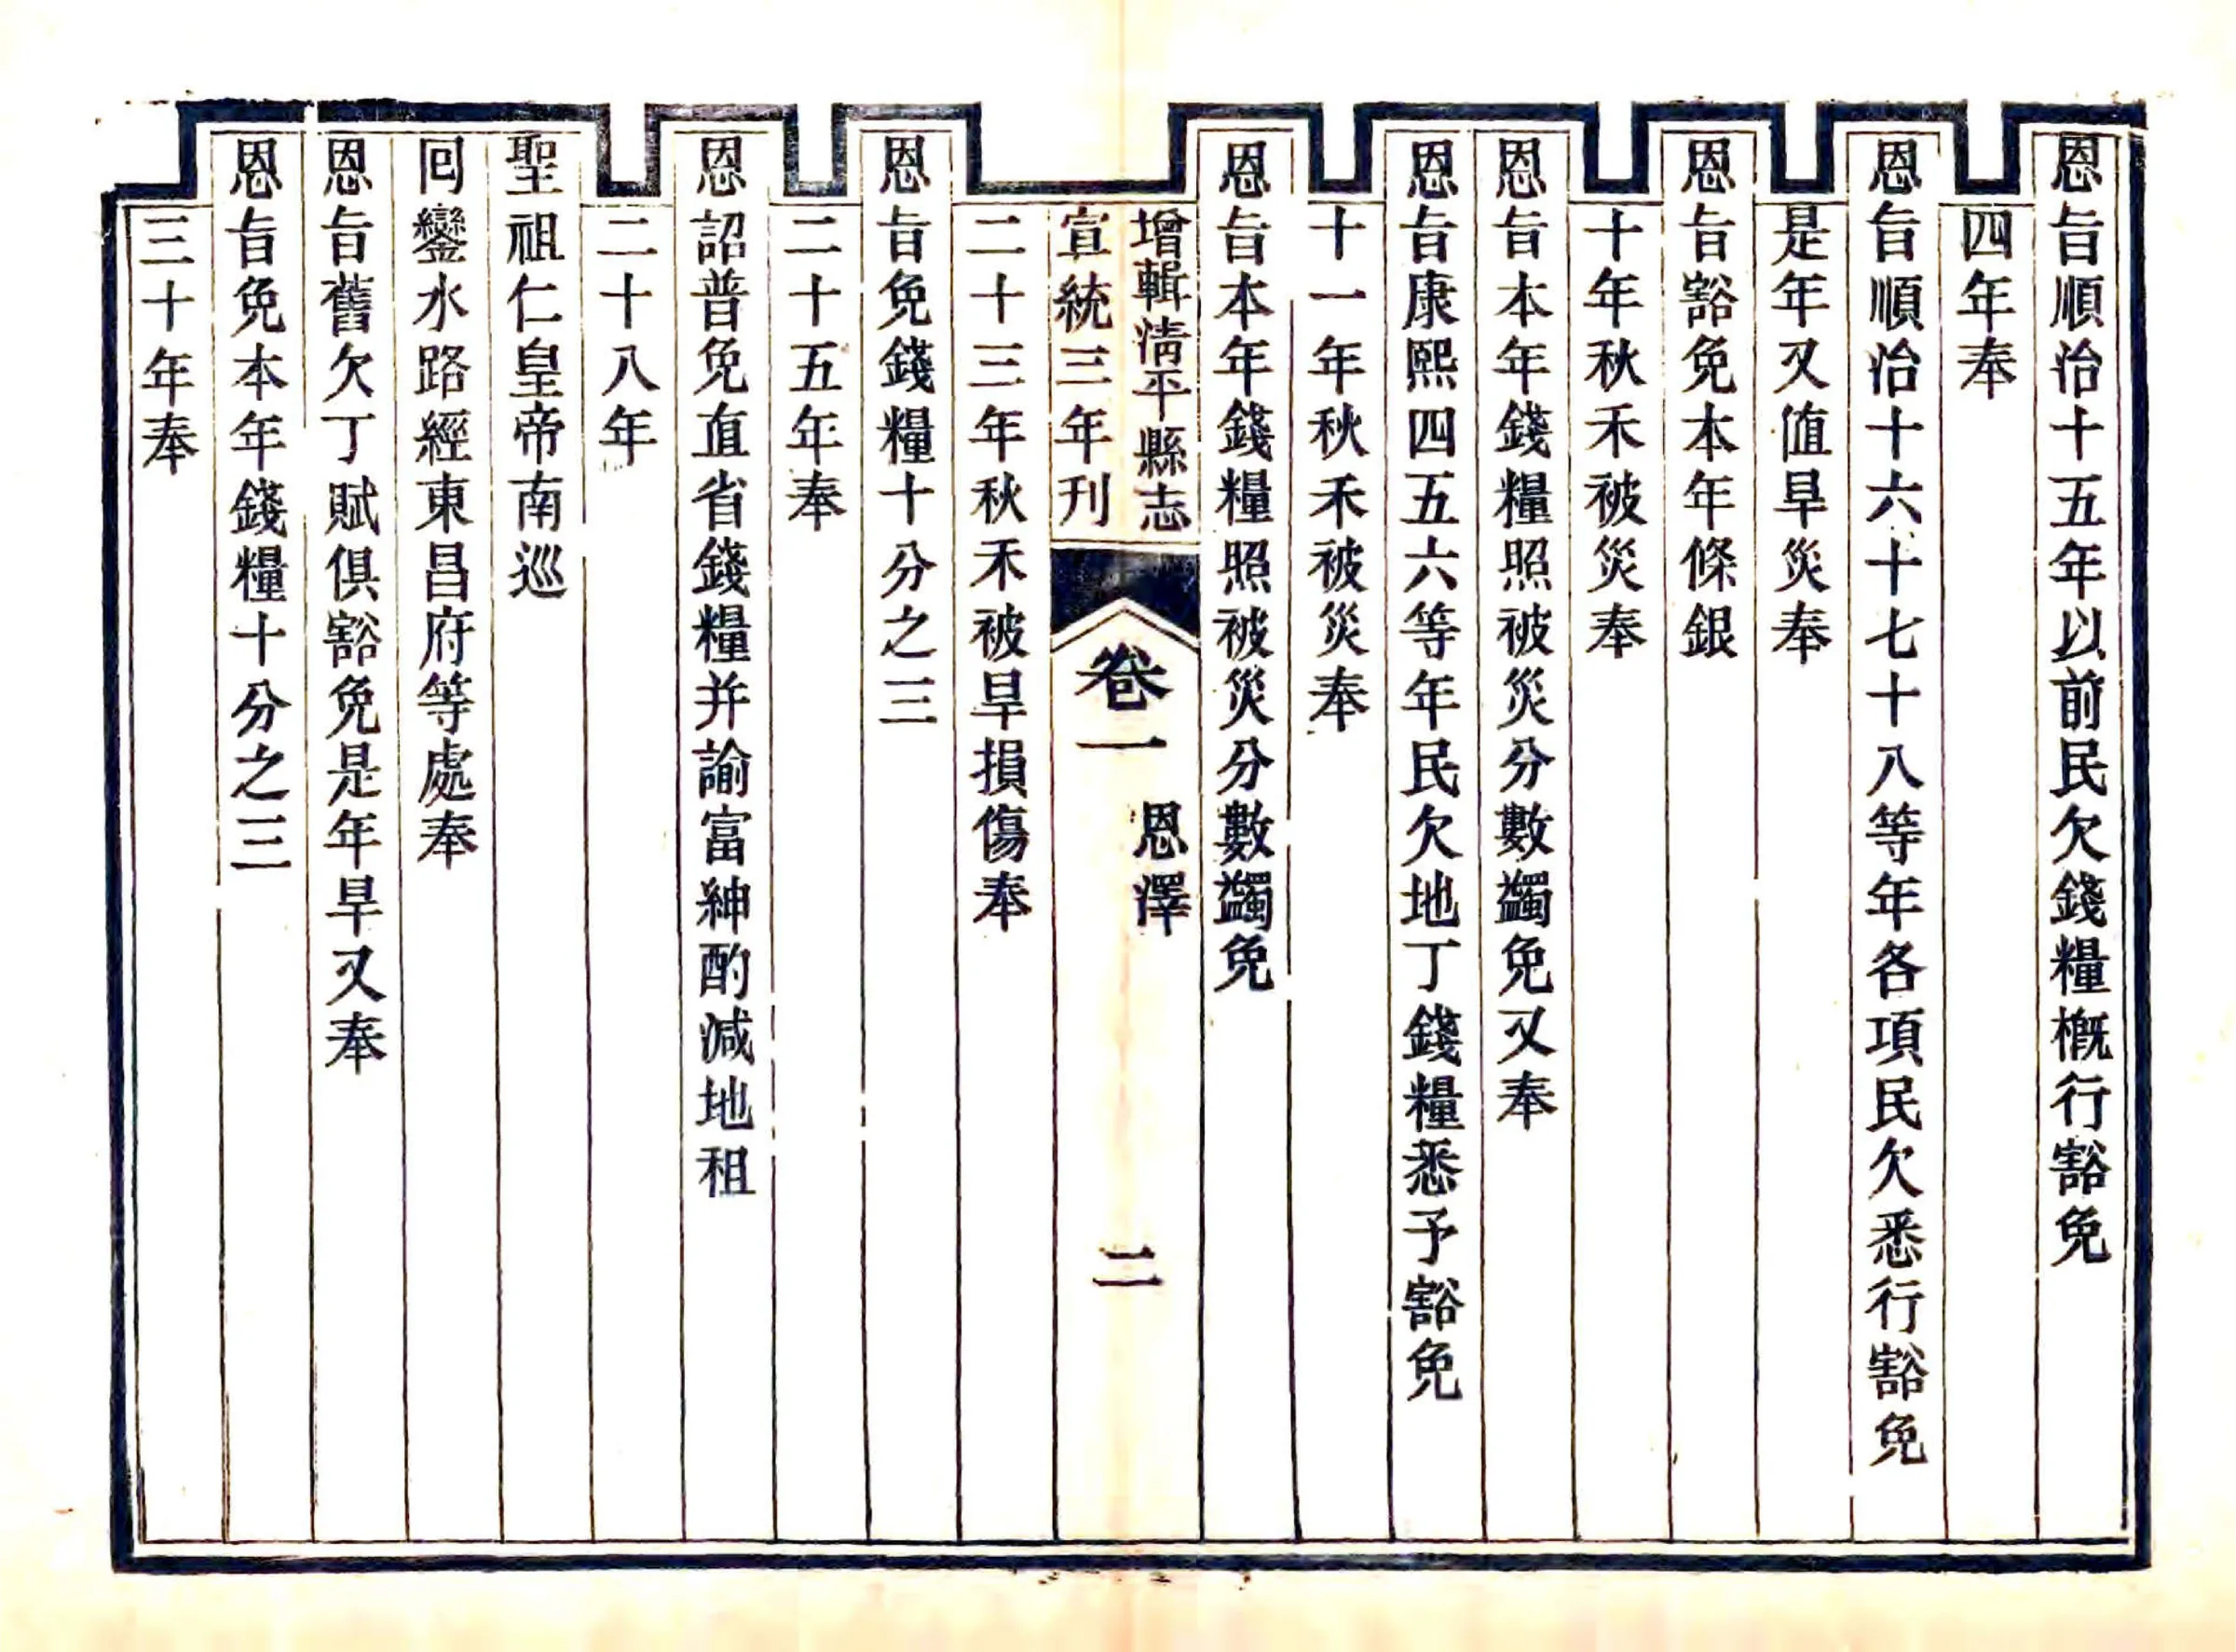 恩旨順治十五年以前民欠錢糧槪行豁免
四年奉
恩旨順治十六十七十八等年各項民欠悉行豁免
是年又值旱災奉
恩旨豁免本年條銀
十年秋禾被災奉
恩旨本年錢糧照被災分數蠲免又奉
恩旨康熙四五六等年民欠地丁錢糧悉予豁免
十一年秋禾被災奉
恩旨本年錢糧照被災分數蠲免
增輯淸平縣志
宣統三年刊
卷一
恩澤
二
二十三年秋禾被旱損傷奉
恩旨免錢糧十分之三
二十五年奉
恩詔普免直省錢糧并諭富紳酌減地租
二十八年
聖祖仁皇帝南巡
囘鑾水路經東昌府等處奉
恩旨舊欠丁賦俱豁免是年旱又奉
恩旨免本年錢糧十分之三
三十年奉